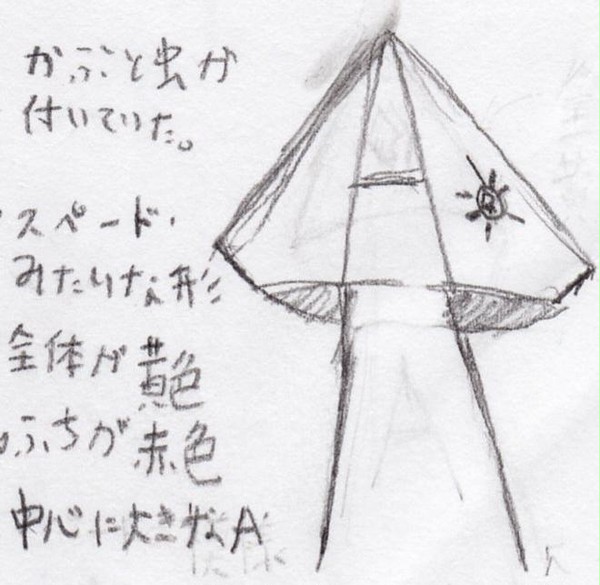 かぶと虫が
付いていた。
スペード
みたいな形
全体が黄色
ふちが赤色
中心に大きなA